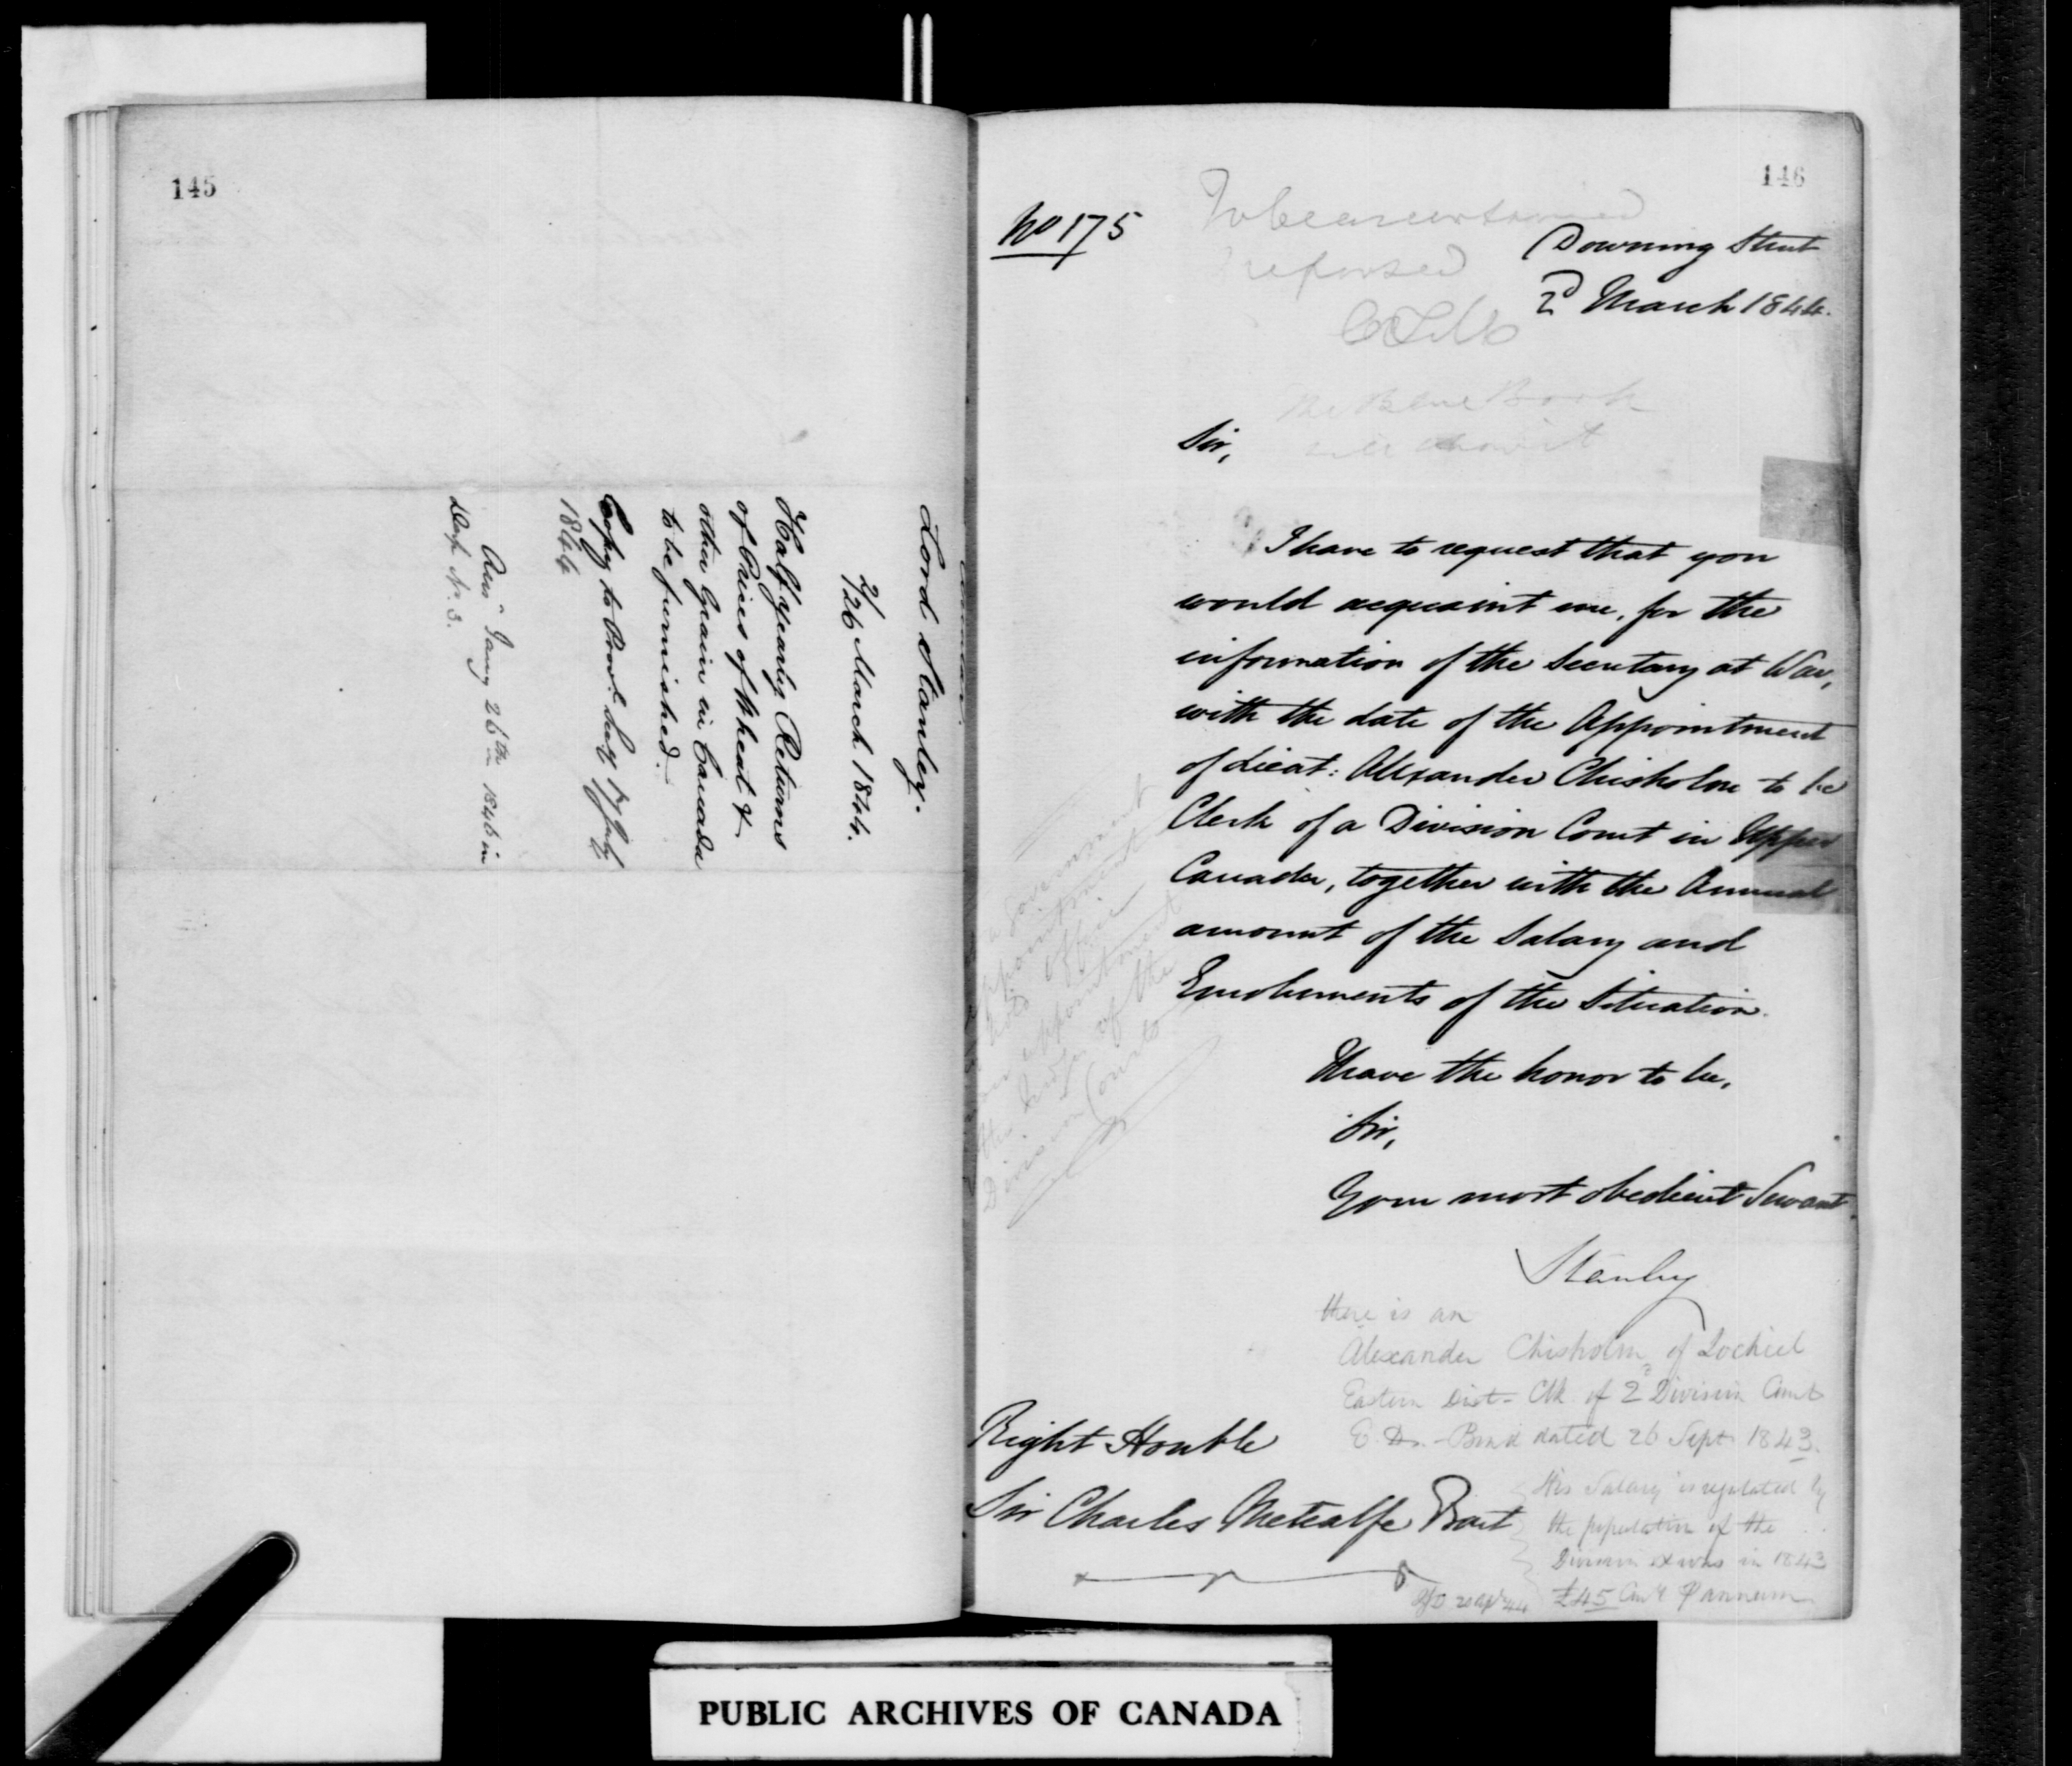 145
Canada.
Lord Stanley.
2/26 March 1844.
Half yearly Returns
of Prices of Wheat &
other Grain in Canada
to be furnished.
Copy to Prov. Secy 17 July
1844
Ansd Jany 26th 1846 in
Desp. No. 3.
146
No 175
To be ascertained
& reported
Downing Street
2d March 1844.
The Blue Book
will show it
Sir,
I have to request that you
would acquaint me, for the
information of the Secretary at War,
with the date of the Appointment
of Lieut: Alexander Chisholm to be
Clerk of a Division Court in Upper
Canada, together with the Annual
amount of the Salary and
Emoluments of the Situation.
I have the honor to be,
Sir,
Your most obedient Servant.
Stanley
a Government
appointment
hold office
appointment
the Judge of the
Division Courts
there is an
Alexander Chisholm of Lochiel
Eastern Dist- Clk of 2d Division Court
E. D. - Bond dated 26 Sept 1843.
His Salary is regulated by
the population of the
Division & was in 1843
£45 Cur'y P annum
Right Honble
Sir Charles Metcalfe Bart